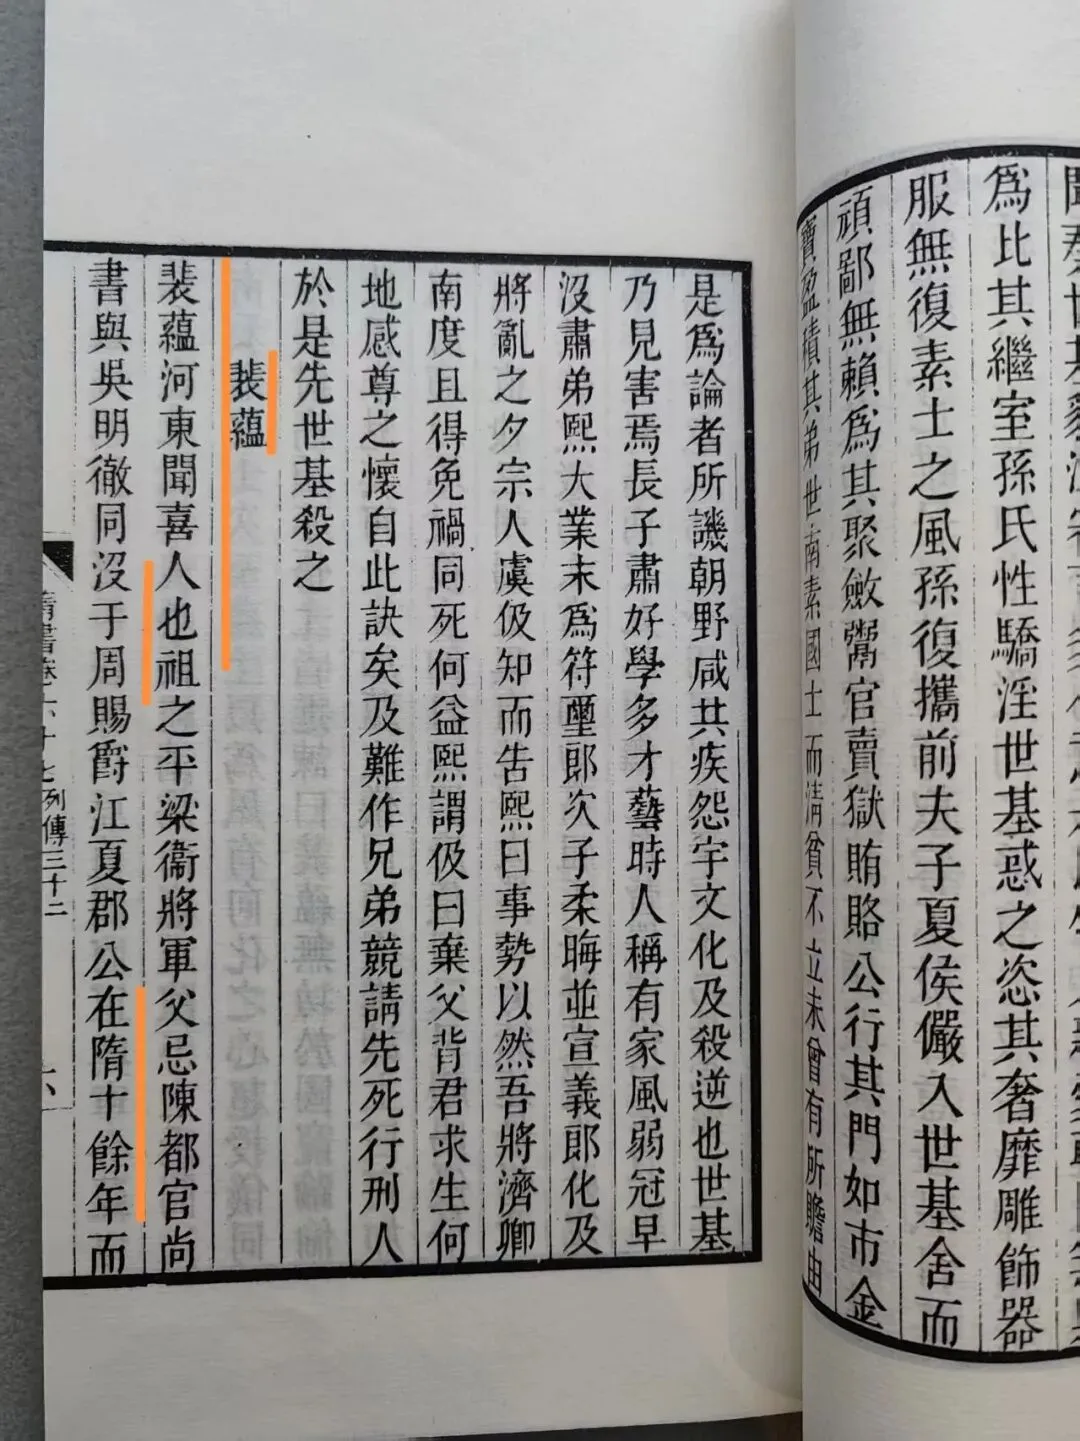 爲比其繼室孫氏性驕淫世基惑之恣其奢靡雕飾器
服無復素士之風孫復攜前夫子夏侯儼入世基舍而
頑鄙無賴爲其聚斂鬻官賣獄賄賂公行其門如市金
寶盈積其弟世南素國士而清貧不立未曾有所贍由
是爲論者所譏朝野咸共疾怨宇文化及殺逆也世基
乃見害焉長子肅好學多才藝時人稱有家風弱冠早
沒肅弟熙大業末爲符璽郎次子柔晦並宣義郎化及
將亂之夕宗人虞伋知而告熙曰事勢以然吾將濟卿
南度且得免禍同死何益熙謂伋曰棄父背君求生何
地感尊之懷自此訣矣及難作兄弟競請先死行刑人
於是先世基殺之
裴蘊
裴蘊河東聞喜人也祖之平梁衞將軍父忌陳都官尚
書與吳明徹同沒于周賜爵江夏郡公在隋十餘年而
隋書卷六十七列傳三十二
六